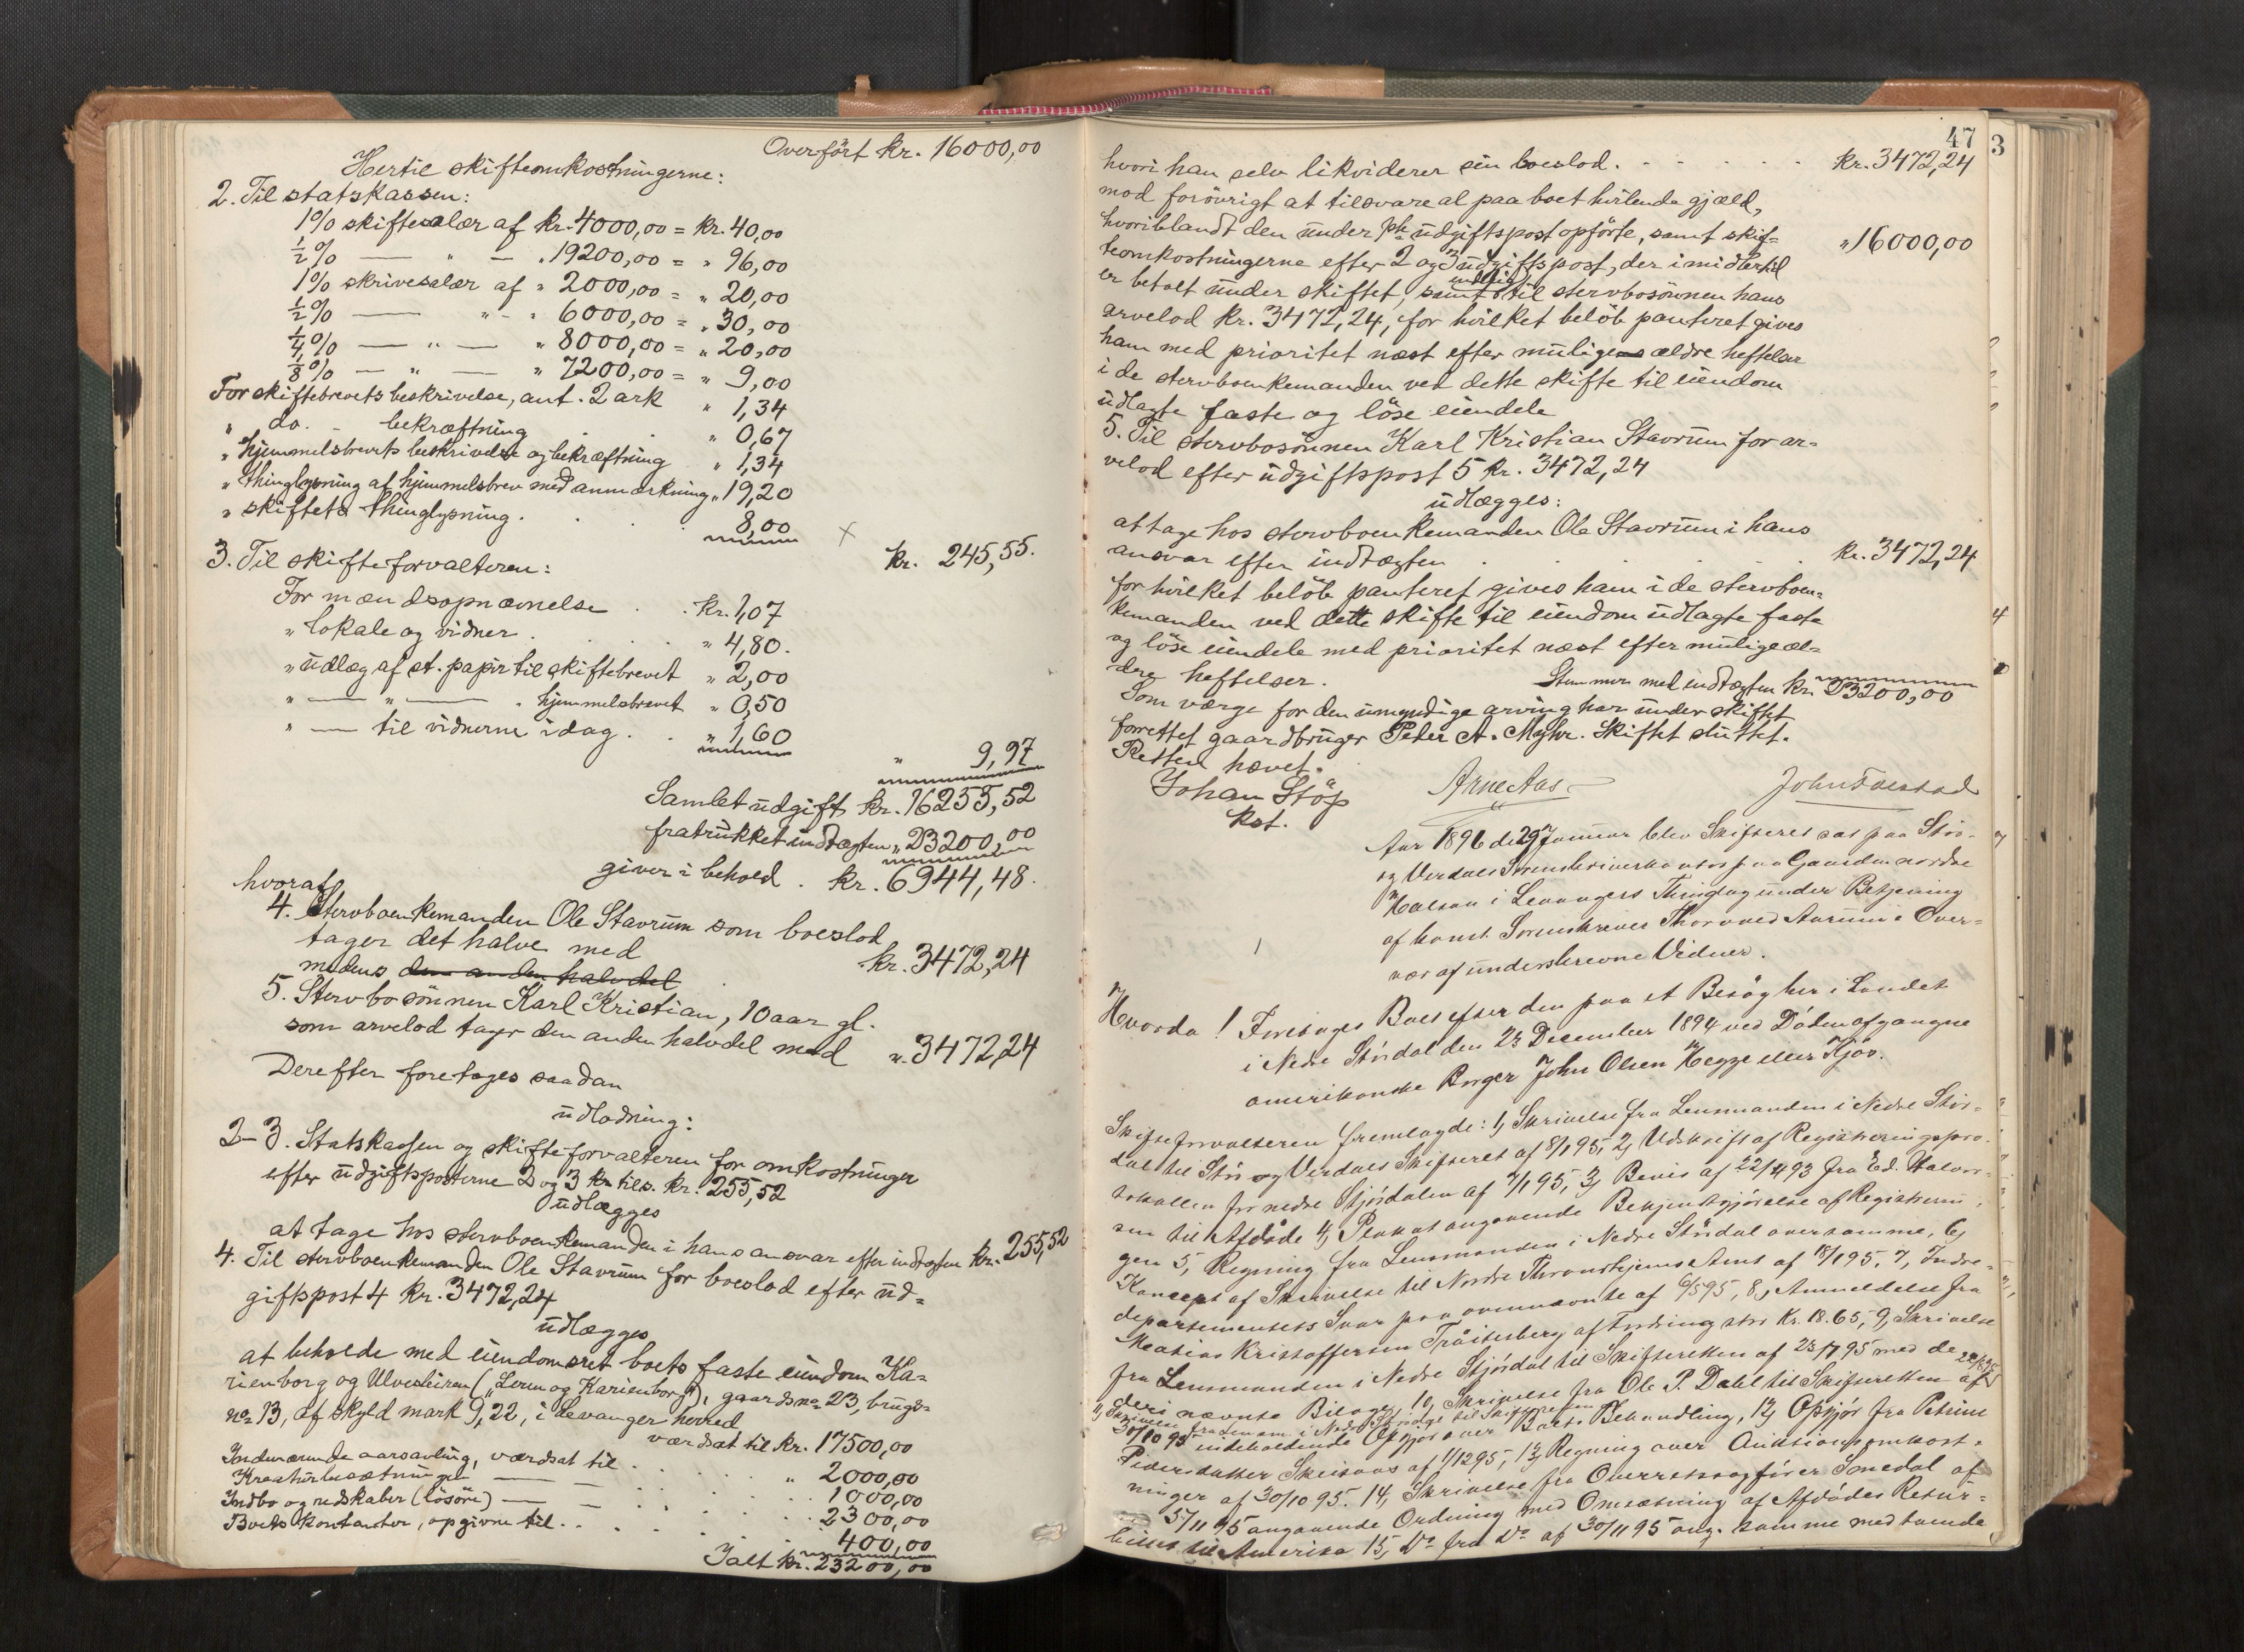 Overført kr. 16000,00
Hertil skifteomkostningerne:
2. Til statskassen:
1% skiftesalær af kr. 4000,00 = kr. 40,00
½% — " — " 19200,00 = " 96,00
1% skrivesalær af " 2000,00 = " 20,00
½% — " - " 6000,00 = " 30,00
¼% — " — " 8000,00 = " 20,00
⅛% — " — " 7200,00 = " 9,00
For skiftebrevets beskrivelse, ant. 2 ark " 1,34
" do. - bekræftning " 0,67
" hjemmelsbrevets beskrivelse og bekræftning " 1,34
" thinglysning af hjemmelsbrev med anmærkning " 19,20
" skiftets thinglysning . . . 8,00
kr. 245,55.
3. Til skifteforvalteren:
For mændsopnævnelse . . kr. 1,07
" lokale og vidner . . . " 4,80.
" udlæg af st. papir til skiftebrevet " 2,00
" — " — " hjemmelsbrevet " 0,50
" — til vidnerne idag . . " 1,60
" 9,97
Samlet udgift kr. 16255,52
fratrukket indtægten " 23200,00
giver i behold . kr. 6944,48.
hvoraf
4. Stervboenkemanden Ole Stavrum som boeslod
tager det halve med . kr. 3472,24
medens den anden halvdel
5. Stervbosønnen Karl Kristian, 10 aar gl.
som arvelod tager den anden halvdel med ". 3472,24
Derefter foretages saadan
udlodning:
2-3. Statskassen og skifteforvalteren for omkostninger
efter udgiftsposterne 2 og 3 kr tils. kr. 255,52
udlægges
at tage hos stervboenkemanden i hans ansvar efter indtægten kr. 255,52
4. Til stervboenkemanden Ole Stavrum for boeslod efter ud=
giftspost 4 kr. 3472,24
udlægges
at beholde med eiendomsret boets faste eiendom Ka=
rienborg og Ulvesleiren („Leren og Karienborg"), gaardsno 23, brugs=
no 13, af skyld mark 9,22, i Levanger herred
værdsat til kr. 17500,00
Indeværende aarsavling, værdsat til . . . . " 2000,00
Kreaturbesætningen — . . . 1000,00
Indbo og redskaber (løsøre) — — . . . 2300,00
Boets kontanter, opgivne til . . . . . 400,00
Ialt kr. 23200,00
47
3
hvori han selv likviderer sin boeslod . - - - - - kr. 3472,24
mod forøvrigt at tilsvare al paa boet hvilende gjæld,
hvoriblandt den under 1ste udgiftspost opførte, samt skif= " 16000,00
teomkostningerne efter 2 og 3 udgiftspost, der imidlertid
er betalt under skiftet, samt endelig til stervbosønnen hans
arvelod kr. 3472,24, for hvilket beløb panteret gives
ham med prioritet næst efter mulige ældre heftelser
i de stervboenkemanden ved dette skifte til eiendom
udlagte faste og løse eiendele
5. Til stervbosønnen Karl Kristian Stavrum for ar=
velod efter udgiftspost 5 kr. 3472,24
udlægges:
at tage hos stervboenkemanden Ole Stavrum i hans
ansvar efter indtægten . . . kr. 3472,24
for hvilket beløb panteret gives ham i de stervboen=
kemanden ved dette skifte til eiendom udlagte faste
og løse eiendele med prioritet næst efter mulige æl=
dre heftelser. Stemmer med indtægten kr. 23200,00
Som værge for den umyndige arving har under skiftet
forrettet gaardbruger Peter A. Myhr. Skiftet sluttet.
Retten hævet.
Johan Støp Arne Aas John Faestad
kst.
Aar 1896 de 29 Januar blev Skifteret sat paa Stør-
og Værdals Sorenskriverkontor paa Gaarden nordre
Halsan i Levangers Thinglag under Betjening
af konst. Sorenskriver Thorvved Aurum i Over=
vær af underskrevne Vidner.
Hvorda! Foretages Boet efter den paa et Besøg her i Landet
i Nedre Størdal den 23 December 1894 ved Døden afgangne
amerikanske Borger John Olsen Hegge eller Kjøv.
Skifteforvalteren fremlagde: 1, Skrivelse fra Lensmanden i Nedre Stør=
dal til Stør og Værdals Skifteret af 8/1 95, 2, Udskrift af Registreringspro-
tokollen for nedre Stjørdalen af 7/1 95, 3, Bevis af 22/4 93 fra Ed. Halvor-
sen til Afdøde 4, Plakat angaaende Bekjentgjørelse af Registrerin=
gen 5, Regning fra Lensmanden i Nedre Størdal oversamme, 6,
Koncept af Skrivelse til Nordre Throndhjems Amt af 18/1 95. 7, Indre=
departementets Svar paa ovennævnte af 6/5 95, 8, Anmeldelse fra
Matias Kristoffersen Tråiteberg af Fordring stor Kr. 18.65, 9, Skrivelse
fra Lensmanden i Nedre Stjørdal til Skifteretten af 23/7 95 med de
deri nævnte Bilage, 10, Skrivelse fra Ole P. Dahl til Skifteretten af 28/8 95
11, Skrivelse fra denom i Nedre Størdal til Skifteretten
30/10 95 indeholdende Opgjør over Boets Behandling, 12, Opgjør fra Petrine
Pedersdatter Skeisaas af 1/12 95, 13, Regning over Auktionsomkost=
ninger af 30/10 95. 14, Skrivelse fra Overretssagfører Smedal af
5/11 95 angaaende Ordning med Omsætning af Afdødes Retur=
billet til Amerika 15, Do fra Do af 30/11 95 ang. samme med tvende